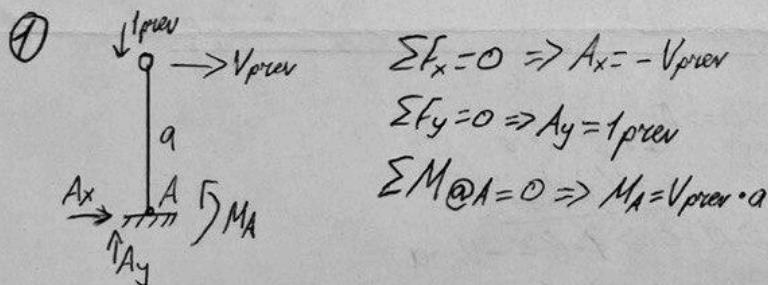 ①
1prev
Vprev
a
Ax
A
MA
Ay
ΣFx=0 => Ax=-Vprev
ΣFy=0 => Ay=1prev
ΣM@A=0 => MA=Vprev·a